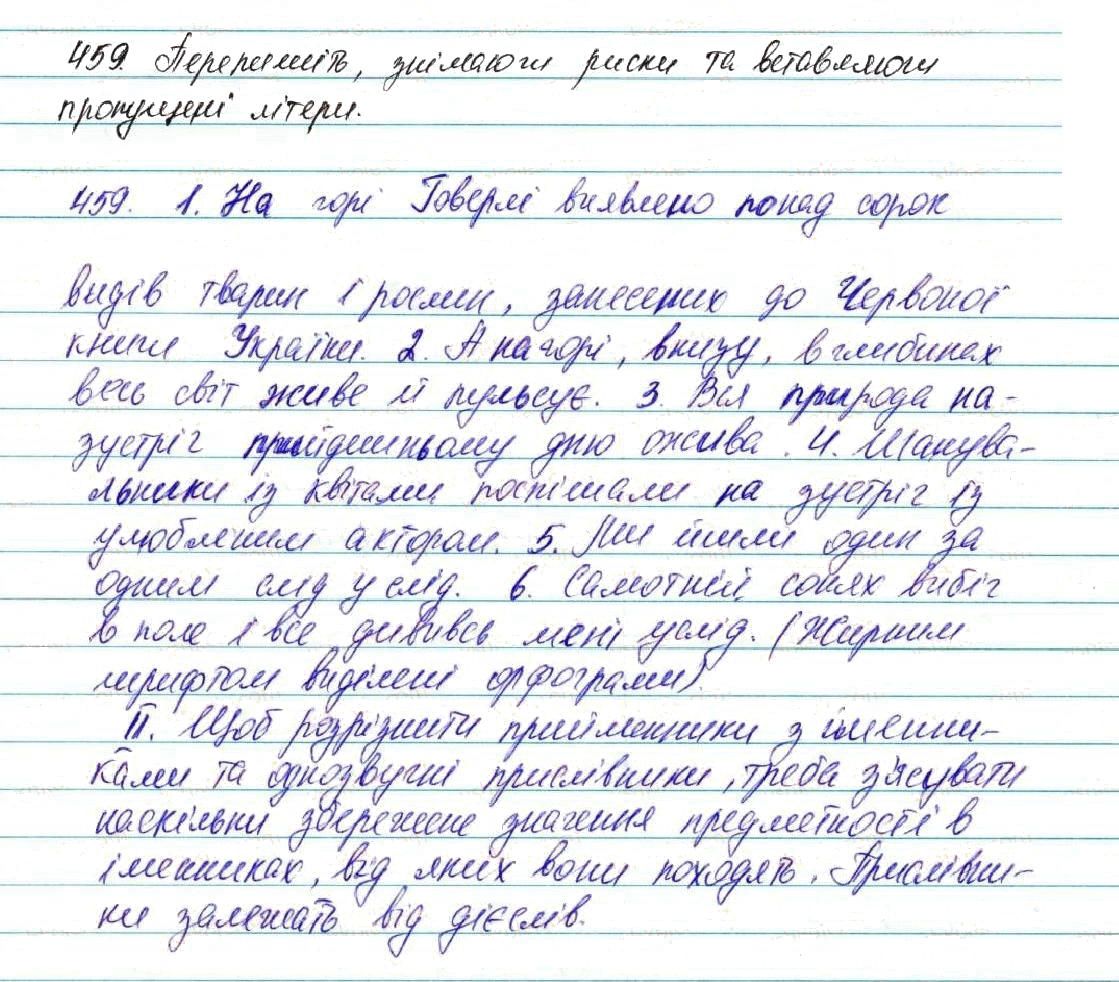 459. Перепишіть, знімаючи риски та вставляючи
пропущені літери.
459. 1. На горі Говерлі виявлено понад сорок
видів тварин і рослин, занесених до Червоної
книги України. 2. А нагорі, внизу, в глибинах
весь світ живе й пульсує. 3. Вся природа на-
зустріч прийдешньому дню ожива. 4. Шанува-
льники із квітами поспішали на зустріч із
улюбленим актором. 5. Ми йшли один за
одним слід у слід. 6. Самотній сонях вибіг
в поле і все дививсь мені услід. (Жирним
шрифтом виділені орфограми).
II. Щоб розрізнити прийменники з іменни-
ками та однозвучні прислівники, треба з'ясувати
наскільки збережене значення предметності в
іменниках, від яких вони походять. Прислівни-
ки залежать від дієслів.